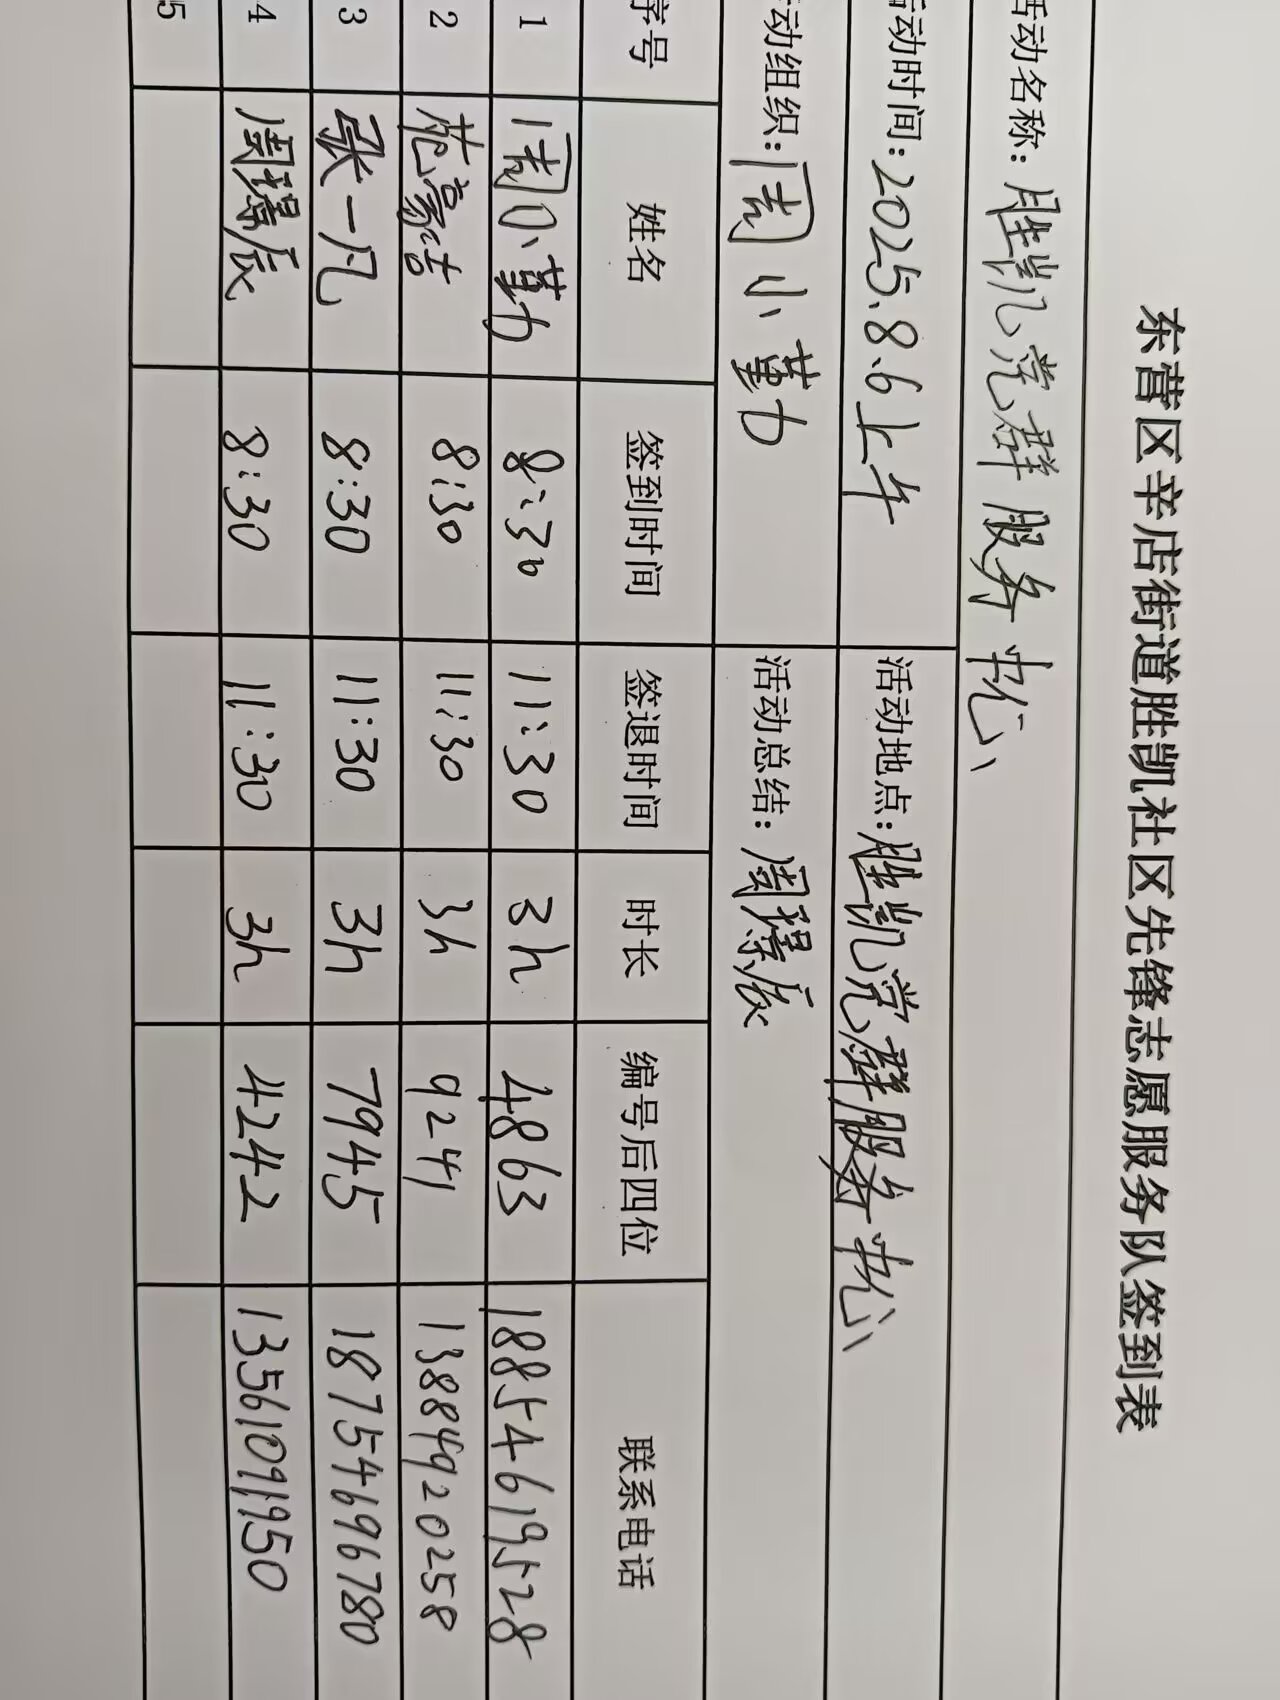 东营区辛店街道胜凯社区先锋志愿服务队签到表
活动名称：胜凯党群服务中心
活动时间：2025.8.6上午 活动地点：胜凯党群服务中心
活动组织：周小勤 活动总结：周璟辰
序号 姓名 签到时间 签退时间 时长 编号后四位 联系电话
1 周小勤 8:30 11:30 3h 4863 18854619528
2 范豪洁 8:30 11:30 3h 9241 13884920258
3 张一凡 8:30 11:30 3h 7945 18754696780
4 周璟辰 8:30 11:30 3h 4242 13561091950
5